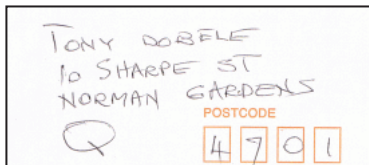 TONY DOBELE
10 SHARPE ST
NORMAN GARDENS
POSTCODE
Q 4701